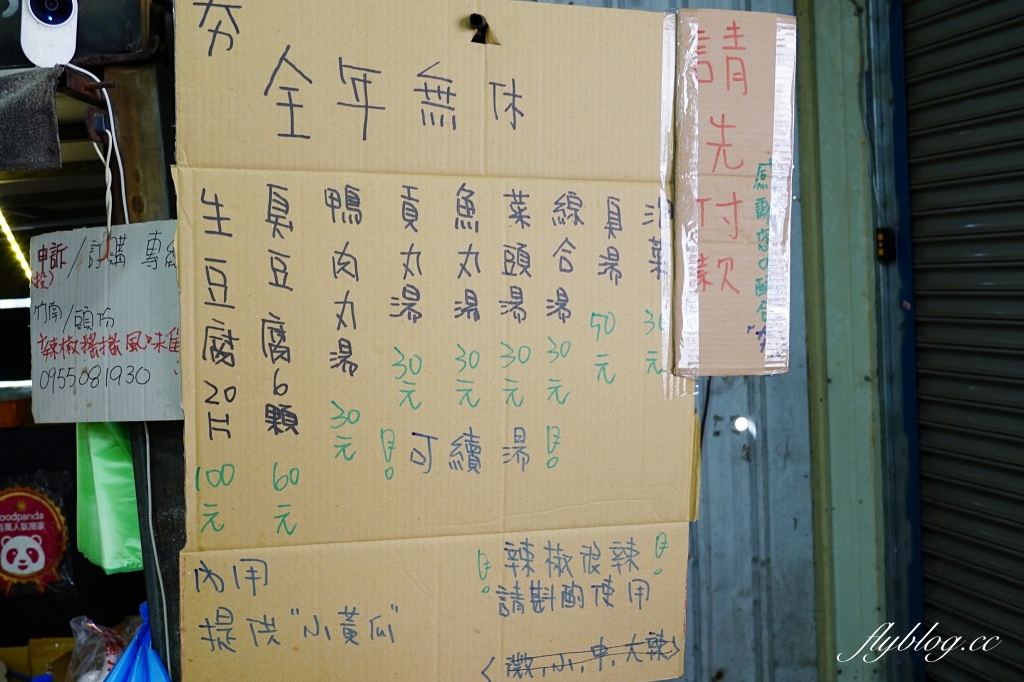 夯
全年無休
生豆腐20片 100元
臭豆腐6顆 60元
鴨肉丸湯 30元
貢丸湯 30元
魚丸湯 30元
菜頭湯 30元
線合湯 30元
臭湯 50元
泡菜 30元
可續湯
內用
提供"小黃瓜"
辣椒很辣
請斟酌使用
(微,小,中,大辣)
請先付款
感謝您的配合
申訴/訂購 專線
竹南/頭份
辣椒攪攪風味佳
0955081930
foodpanda
百萬人氣商家
flyblog.cc